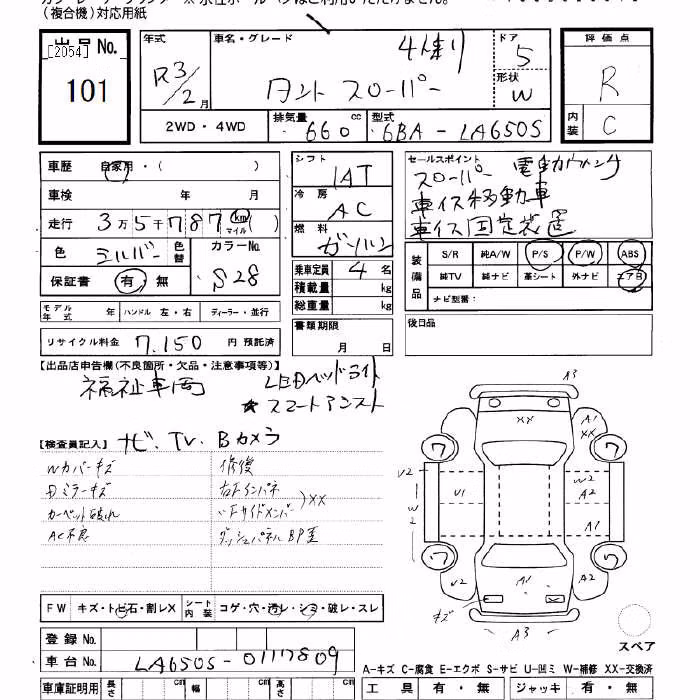 (複合機)対応用紙
出品No.
[2054]
101
年式 R3/2月
車名・グレード 4人乗り
タント スローパー
ドア 5
形状 W
評価点 R
内装 C
2WD・4WD
排気量 660 cc
型式 6BA-LA650S
車歴 自家用・( )
車検 年 月
走行 3万5千787 km マイル ( )
色 シルバー 色替
カラーNo. S28
保証書 有・無
シフト IAT
冷房 AC
燃料 ガソリン
乗車定員 4名
積載量 kg
総重量 kg
セールスポイント 電動ウィンチ
スローパー
車イス移動車
車イス固定装置
装備品 S/R 純A/W P/S P/W ABS
純TV 純ナビ 革シート 外ナビ エアB
ナビ型番:
モデル年式 年 ハンドル 左・右 ディーラー・並行
リサイクル料金 7.150 円 預託済
書類期限 月 日
後日品
【出品店申告欄(不良箇所・欠品・注意事項等)】
福祉車両 LEDヘッドライト
★スマートアシスト
【検査員記入】 ナビ、TV、Bカメラ
Wカバーキズ 修復
Dミラーキズ 右Fインパネ
カーペット破れ Fサイドメンバー XX
AC不良 ダッシュパネルBP歪
A3
XX
A1
XX
ワ ワ
V2 U1 W2 A2
W2
A1
ワ ワ
W2 A1 A2
キズ
A3
スペア
FW キズ・トビ石・割レX シート内装 コゲ・穴・汚レ・シミ・破レ・スレ
登録No.
車台No. LA650S-0117809
A-キズ C-腐食 E-エクボ S-サビ U-凹ミ W-補修 XX-交換済
車庫証明用 長さ cm 幅 cm 高さ cm
工具 有・無 ジャッキ 有・無